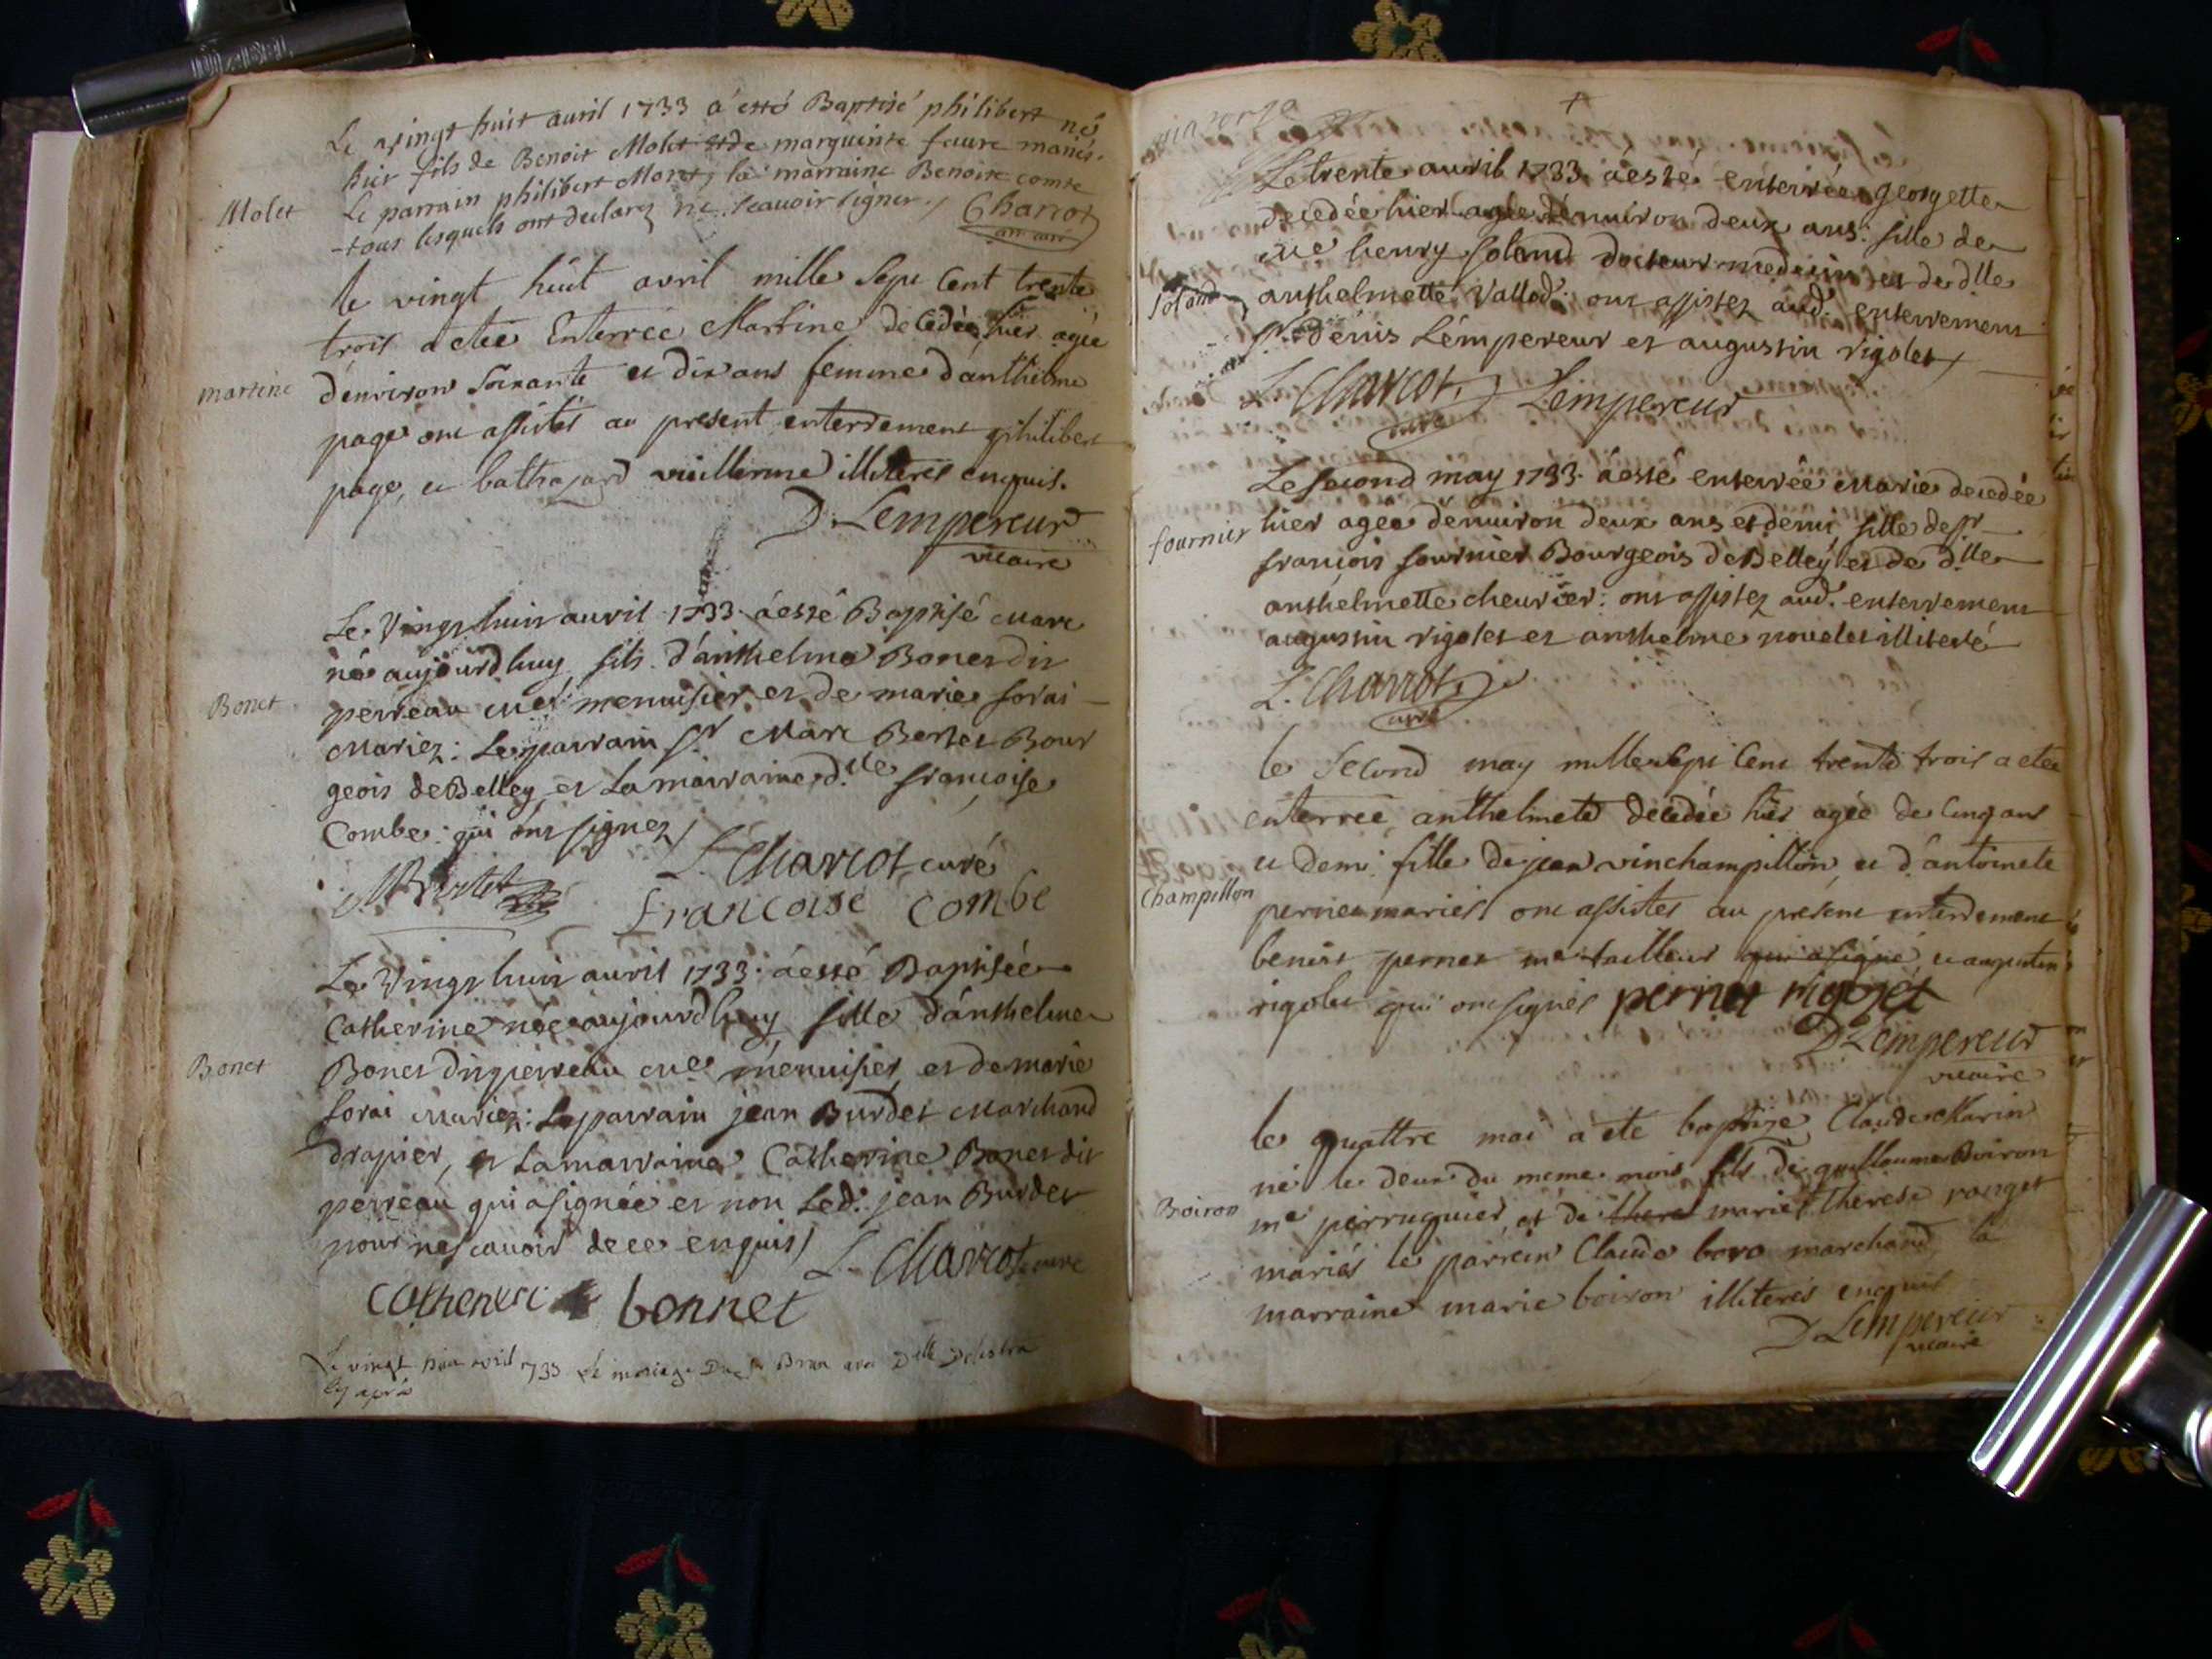 Le vingt huit auril 1733 a esté Baptisé philibert né
hier fils de Benoit Molet et de marguerite faure mariés.
Molet
Le parrain philibert Moret, la marraine Benoite comte
tous lesquels ont declarez ne scauoir signer. Charcot
le vingt huit avril mille sept Cent trente
trois a étée Enterrée Martine decedée hier agée
martine
d'environ soixante et dix ans femme d'anthelme
page ont assistés au present enterrement philibert
page, et balthazard vuillerme illiterés enquis.
D. Lempereur
vicaire
Le Vingt huit auril 1733. a esté Baptisé Marc
né aujourdhuy fils d'anthelme Bonet dit
Bonet
perreau me menuisier et de marie forai
Mariez: Le parrain sr Marc Bertet Bour
geois de Belley et La marraine dlle françoise
Combe: qui ont signez
L. Charcot curé
MBertet
francoise combe
Le Vingt huit auril 1733. a esté Baptisée
Catherine née aujourdhuy fille d'anthelme
Bonet
Bonet dit perreau me menuisier et de marie
forai Mariez: Le parrain jean Burdet Marchand
drapier, et La marraine Catherine Bonet dit
perreau qui a signée et non Led. jean Burdet
pour ne scauoir de ce enquis
L. Charcot curé
catherine bonnet
Le vingt huit avril 1733 Le mariage Du sr Brun avec Dlle
cy après
Le trente auril 1733. a esté enterrée georgette
decedée hier agée denuiron deux ans: fille de
Me henry soland docteur medecin et de dlle
soland
anthelmette Vallod: ont assistez aud. enterrement
sr denis Lempereur et augustin rigolet
L. Charcot curé Lempereur
Le second may 1733. a esté enterrée Marie decedée
fournier
hier agée denuiron deux ans et demi fille de sr
françois fournier Bourgeois de Belley et de dlle
anthelmette cheurier: ont assistez aud. enterrement
augustin rigolet et anthelme nouelet illiteré
L. Charcot
curé
le second may mille sept Cent trente trois a etée
enterrée anthelmete decedée hier agée de Cinq ans
et demi fille de jean vinchampillon, et d'antoinete
Champillon
pernet mariés ont assistes au present enterrement
benoit pernet me tailleur qui a signé et augustin
rigolet qui ont signés pernet rigolet
D Lempereur
vicaire
le quattre mai a ete baptise Claude Marin
né le deux du meme mois fils de guillaume Boiron
Boiron
me perruquier, et de there marie therese ronget
mariés le parrein Claude bovo marchand la
marraine marie boiron illiterés enquis
D Lempereur
vicaire